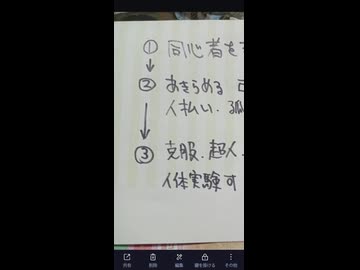 ① 同心者を
② あきらめる
人払い.
③ 克服.超人.
人体実験す
共有 削除 編集 鍵を掛ける その他